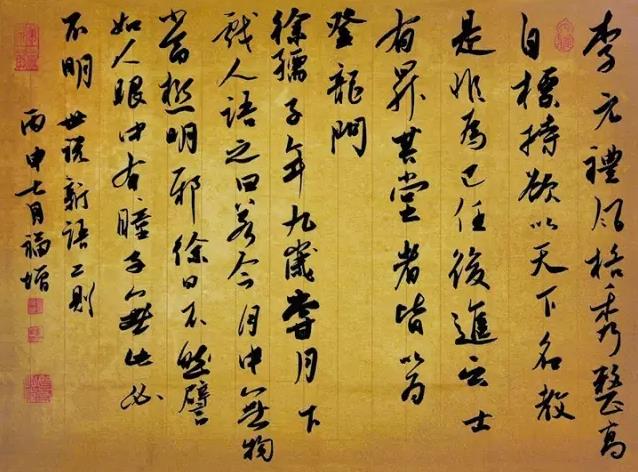 李元禮風格秀整高
自標持欲以天下名教
是非為己任後進之士
有昇其堂者皆以為
登龍門
徐孺子年九歲嘗月下
戲人語之曰若令月中無物
當極明邪徐曰不然譬
如人眼中有瞳子無此必
不明 世說新語二則
丙申七月福增